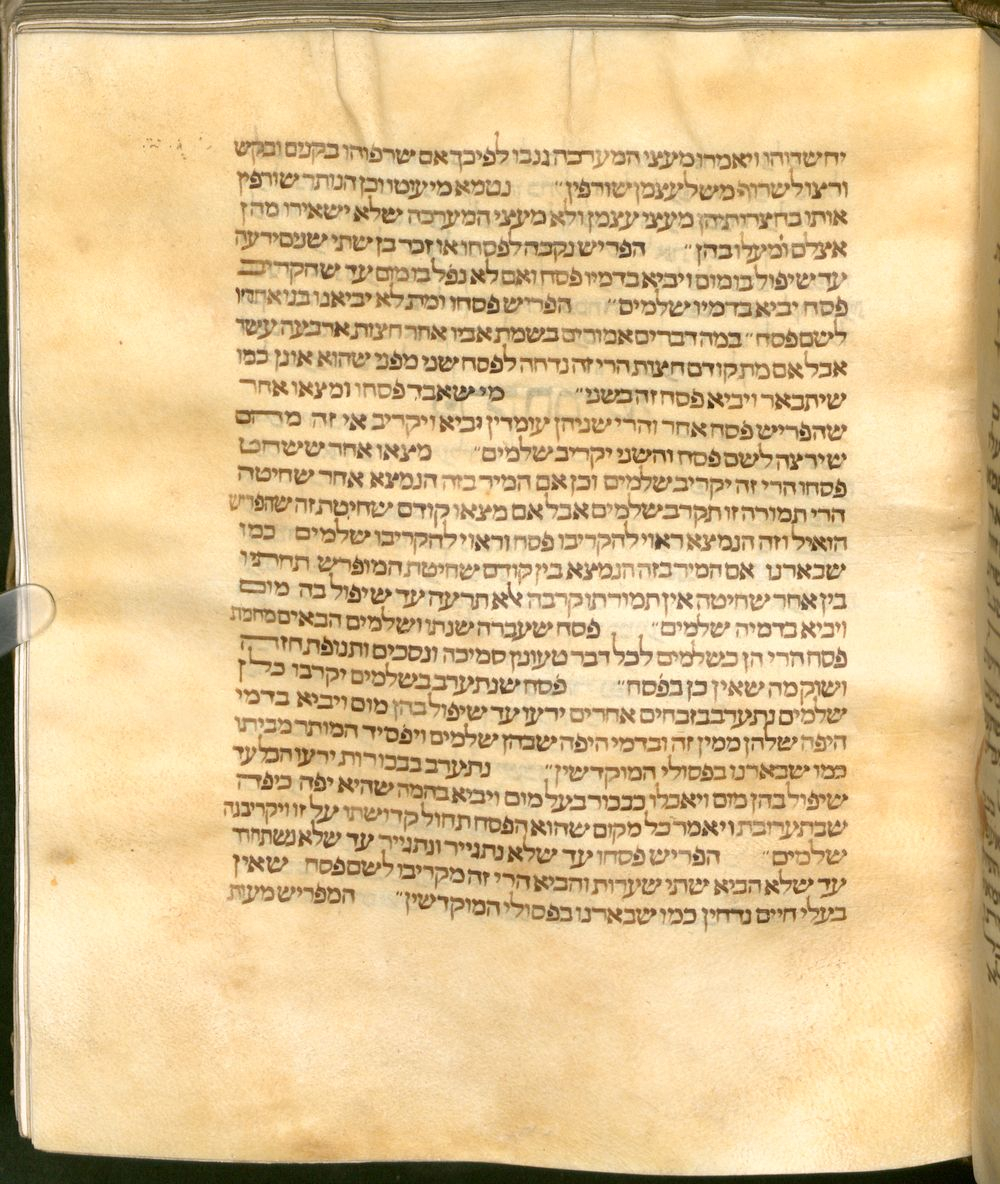 יחשדוהו ויאמרו מעצי המערכה גנבו לפיכך אם שרפוהו בקנים ובקש
ורצו לשרוף משל עצמן שורפין״ נטמא מיעוטו וכן הנותר שורפין
אותו בחצרותיהן מעצי עצמן ולא מעצי המערכה שלא ישאירו מהן
אצלם ומעלו בהן״ הפריש נקבה לפסחו או זכר בן שתי שנים ירעה
עד שיפול בו מום ויביא בדמיו פסח ואם לא נפל בו מום עד שהקריב
פסח יביא בדמיו שלמים״ הפריש פסחו ומת לא יביאנו בנו אחריו
לשם פסח״ במה דברים אמורים בשמת אביו אחר חצות ארבעה עשר
אבל אם מת קודם חצות הרי זה נדחה לפסח שני מפני שהוא אונן כמו
שיתבאר ויביא פסח זה בשני״ מי שאבד פסחו ומצאו אחר
שהפריש פסח אחר והרי שניהן עומדין יביא ויקריב אי זה מהם
שירצה לשם פסח והשני יקריב שלמים״ מצאו אחר ששחט
פסחו הרי זה יקריב שלמים וכן אם המיר בזה הנמצא אחר שחיטה
הרי תמורה זו תקרב שלמים אבל אם מצאו קודם שחיטת זה שהפריש
הואיל וזה הנמצא ראוי להקריבו פסח וראוי להקריבו שלמים כמו
שבארנו אם המיר בזה הנמצא בין קודם שחיטת המופרש תחתיו
בין אחר שחיטה אין תמורתו קרבה אלא תרעה עד שיפול בה מום
ויביא בדמיה שלמים״ פסח שעברה שנתו ושלמים הבאים מחמת
פסח הרי הן כשלמים לכל דבר טעונין סמיכה ונסכים ותנופת חזה
ושוק מה שאין כן בפסח״ פסח שנתערב בשלמים יקרבו כולן
שלמים נתערב בזבחים אחרים ירעו עד שיפול בהן מום ויביא בדמי
היפה שלהן ממין זה ובדמי היפה שבהן שלמים ויפסיד המותר מביתו
כמו שבארנו בפסולי המוקדשין״ נתערב בבכורות ירעו הכל עד
שיפול בהן מום ויאכלו כבכור בעל מום ויביא בהמה שהיא יפה כיפה
שבתערובת ויאמר כל מקום שהוא הפסח תחול קדושתו על זו ויקריבנה
שלמים״ הפריש פסחו עד שלא נתגייר ונתגייר עד שלא נשתחרר
עד שלא הביא שתי שערות והביא הרי זה מקריבו לשם פסח שאין
בעלי חיים נדחין כמו שבארנו בפסולי המוקדשין״ המפריש מעות